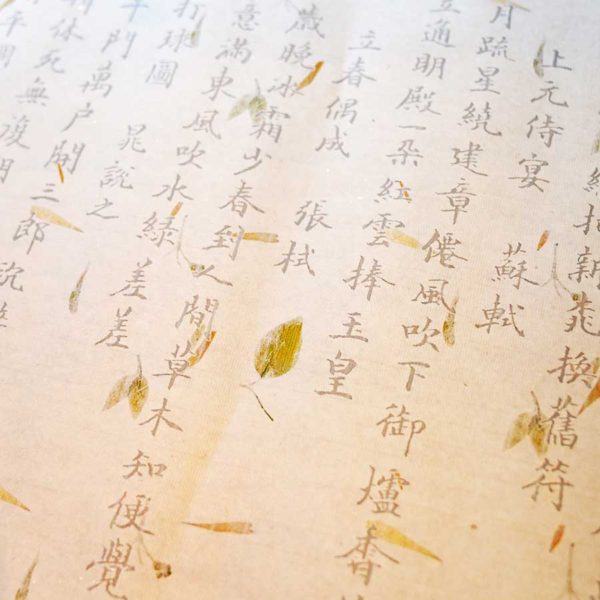 總把新桃換舊符
上元侍宴 蘇軾
月疏星繞建章僊風吹下御爐香
立通明殿一朵紅雲捧玉皇
立春偶成 張栻
歲晚冰霜少春到人間草木知便覺
意滿東風吹水綠差差
打球圖 晁說之
千門萬戶開三郎沈
休死無復明